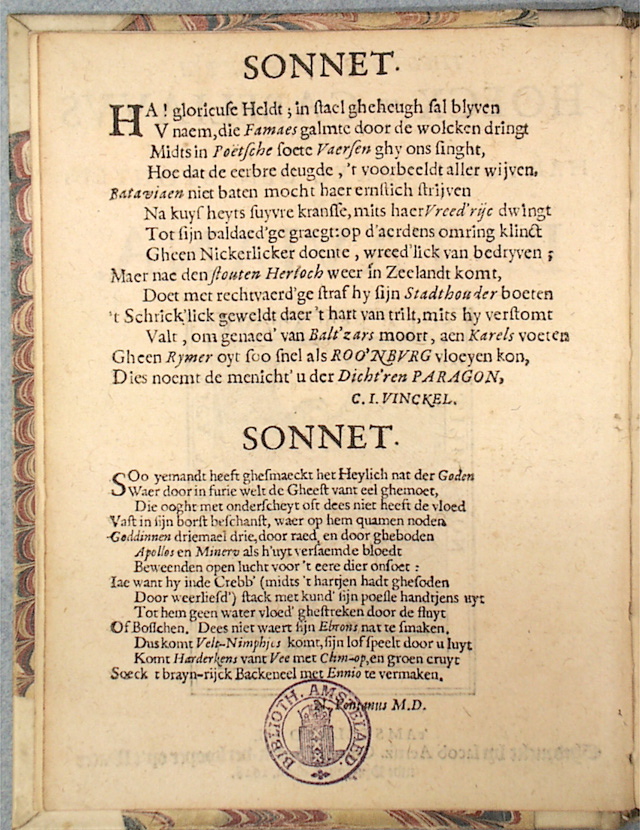 SONNET.
HA! glorieuse Heldt; in stael gheheugh sal blyven
V naem, die Famaes galmte door de wolcken dringt
Midts in Poëtsche soete Vaersen ghy ons singht,
Hoe dat de eerbre deugde, 't voorbeeldt aller wijven,
Bataviaen niet baten mocht haer ernstich strijven
Na kuysheyts suyvre kransse, mits haer Vreed'rijc dwingt
Tot sijn baldaed'ge graegt: op d'aerdens omring klinct
Gheen Nickerlicker doente, wreed'lick van bedryven;
Maer nae den stouten Hertoch weer in Zeelandt komt,
Doet met rechtvaerd'ge straf hy sijn Stadthouder boeten
't Schrick'lick geweldt daer 't hart van trilt, mits hy verstomt
Valt, om genaed' van Balt'zars moort, aen Karels voeten
Gheen Rymer oyt soo snel als ROO'NBVRG vloeyen kon,
Dies noemt de menicht' u der Dicht'ren PARAGON,
C. I. VINCKEL.
SONNET.
SOo yemandt heeft ghesmaeckt het Heylich nat der Goden
Waer door in furie welt de Gheest vant eel ghemoet,
Die ooght met onderscheyt oft dees niet heeft de vloed
Vast in sijn borst beschanst, waer op hem quamen noden
Goddinnen driemael drie, door raed, en door gheboden
Apollos en Minerv als h'uyt versaemde bloedt
Beweenden open lucht voor 't eere dier onsoet:
Iae want hy inde Crebb' (midts 't hartjen hadt ghesoden
Door weerliefd') stack met kund' sijn poesle handtjens uyt
Tot hem geen water vloed' ghestreken door de fluyt
Of Bosschen. Dees niet waert sijn Ebrons nat te smaken.
Dus komt Velt-Nimphjes komt, sijn lof speelt door u luyt
Komt Harderkens vant Vee met Clim-op, en groen cruyt
Soeck t brayn-rijck Backeneel met Ennio te vermaken.
N. Pontanus M.D.
BIBLIOTH. AMSTELAED.